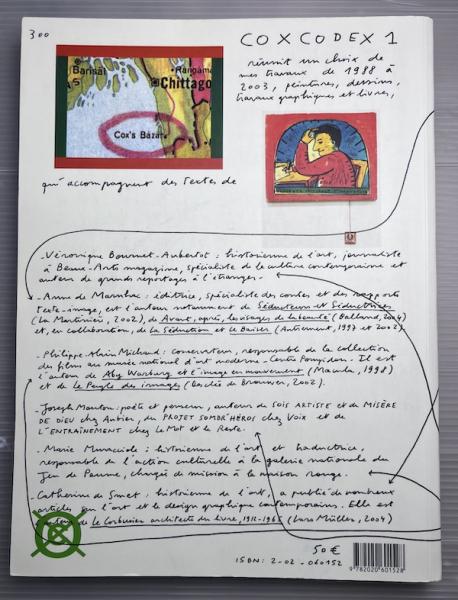 300
COXCODEX 1
réunit un choix de
mes travaux de 1988 à
2003, peintures, dessins,
travaux graphiques et livres,
Barisal
Rangama
Chittago
Cox's Bazar
qui accompagnent des textes de
- Véronique Bouruet-Aubertot : historienne de l'art, journaliste
à Beaux-Arts magazine, spécialiste de la culture contemporaine et
auteur de grands reportages à l'étranger.
- Anne de Marnhac : éditrice, spécialiste des contes et des rapports
texte-image, est l'auteur notamment de Séducteurs et Séductrices
(La Martinière, 2002) de Avant, après, les visages de la beauté (Balland, 2004)
et, en collaboration, de la Séduction et le Baiser (Autrement, 1997 et 2002).
- Philippe-Alain Michaud : conservateur, responsable de la collection
des films au musée national d'art moderne - Centre Pompidou. Il est
l'auteur de Aby Warburg et l'image en mouvement (Macula, 1998)
et de Le Peuple des images (Desclée de Brouwer, 2002).
- Joseph Mouton : poète et penseur, auteur de SOIS ARTISTE et de MISÈRE
DE DIEU chez Aubier, du PROJET SOMBR'HÉROS chez Voix et de
L'ENTRAÎNEMENT chez Le Mot et le Reste.
- Marie Muracciole : historienne de l'art et traductrice,
responsable de l'action culturelle à la galerie nationale du
Jeu de Paume, chargée de mission à la maison rouge.
- Catherine de Smet : historienne de l'art, a publié de nombreux
articles sur l'art et le design graphique contemporains. Elle est
l'auteur de Le Corbusier architecte du livre, 1912-1965 (Lars Müller, 2004)
50 €
ISBN : 2-02-060152
9 782020 601528